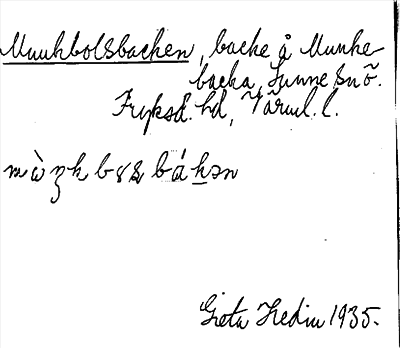 Munkbolsbacken, backe å Munke-
backa, Sunne sn ö.
Fryksd. hd, Värml. l.
Greta Hedin 1935.